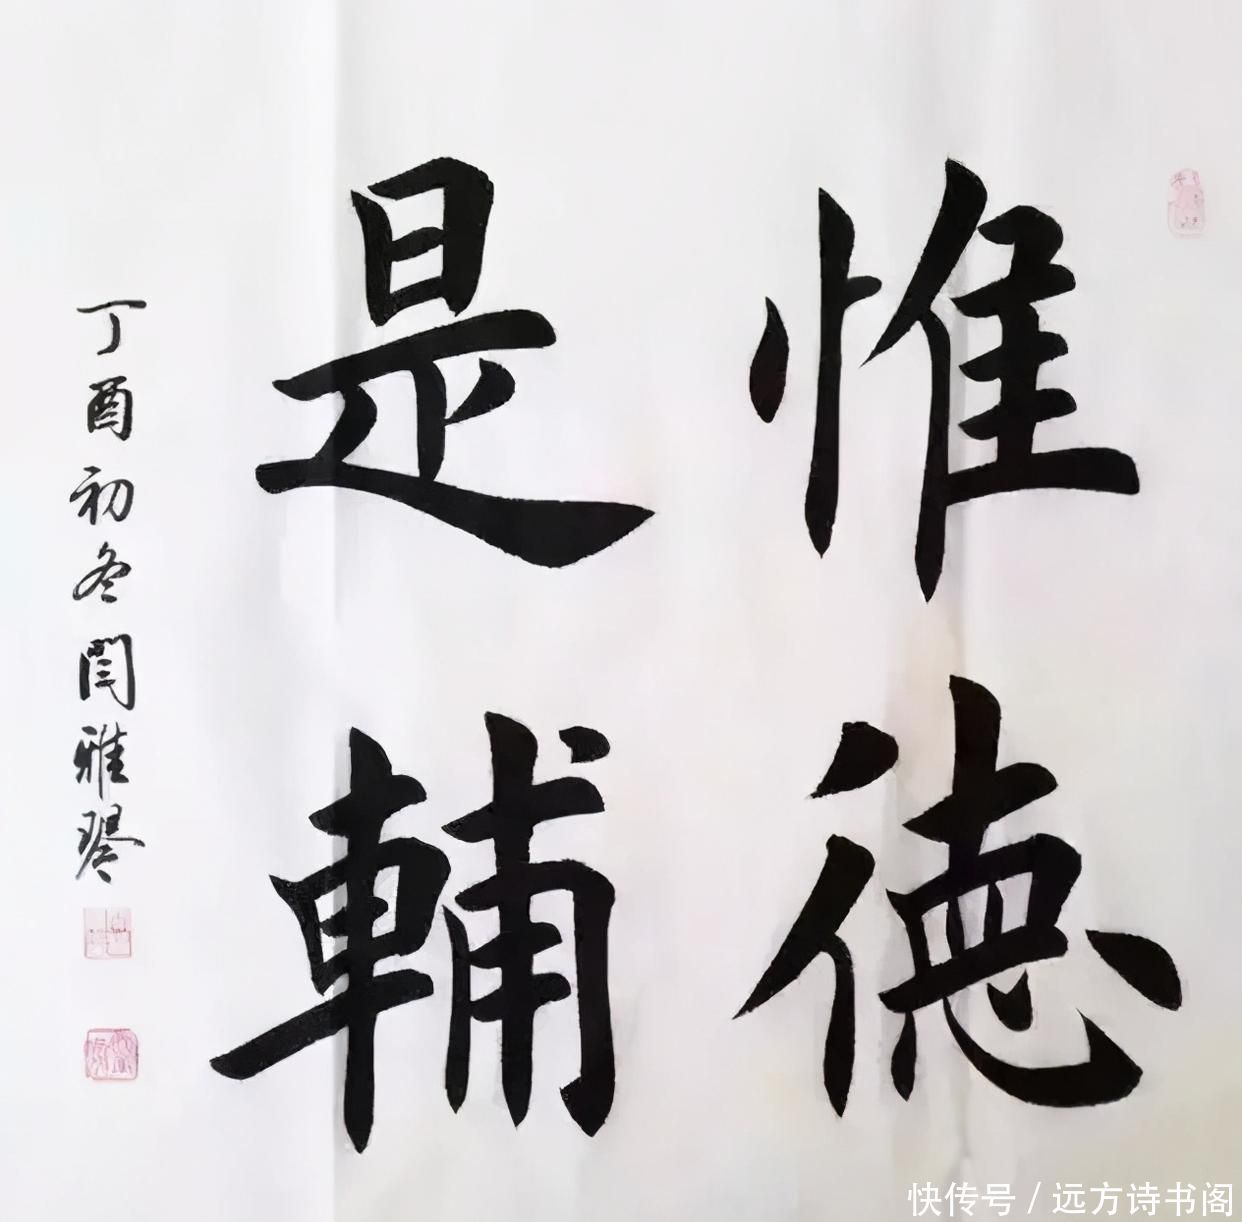 惟德
是輔
丁酉初冬閆雅琴
快传号 / 远方诗书阁